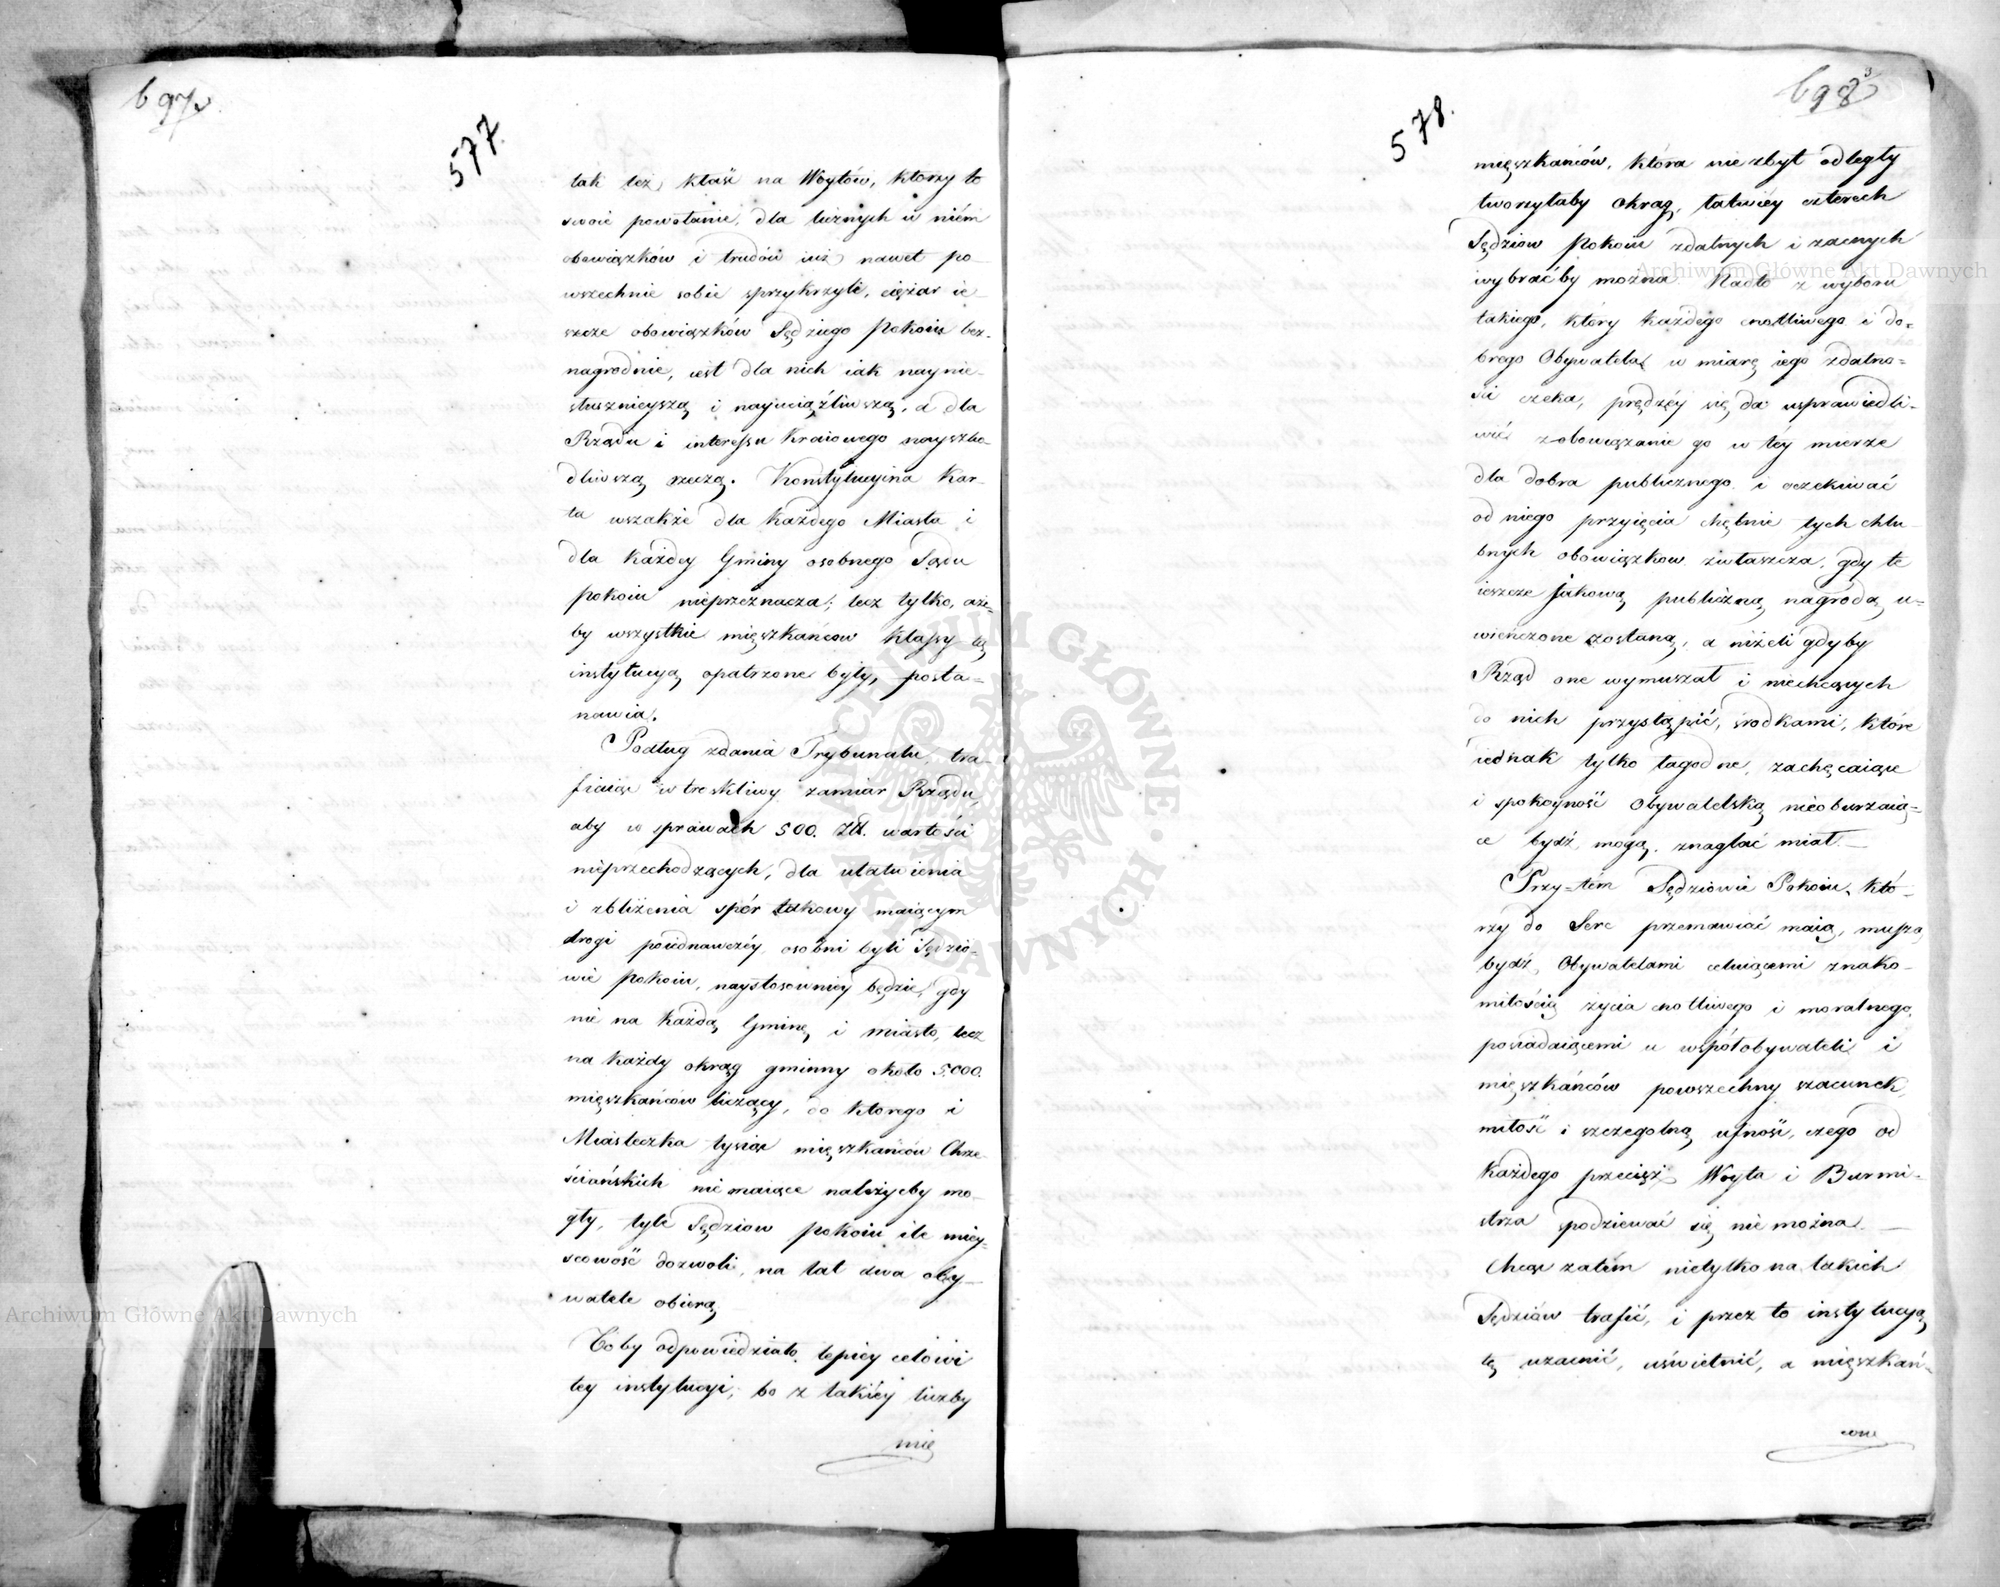 697
577.
tak też kłaść na Woytów, którzy to
swoie powołanie, dla licznych w niém
obowiązków i trudów iuż nawet po
wszechnie sobie sprzykrzyli, ciężar ie-
szcze obowiązków Sędziego Pokoiu bez-
nagrodnie, iest dla nich iak naynie-
słusznieyszą i nayuciążliwszą, a dla
Rządu i interessu Kraiowego nayszko-
dliwszą rzeczą. Konstytucyina Kar-
ta wszakże dla każdego Miasta i
dla każdey Gminy osobnego Sądu
pokoiu nieprzeznacza; lecz tylko, aże-
by wszystkie mięszkańcow klassy tą
instytucyą opatrzone były, posta-
nawia.
Podług zdania Trybunału, tra-
fiaiąc w troskliwy zamiar Rządu,
aby w sprawach 500. Złł. wartości
nieprzechodzących, dla ułatwienia
i zbliżenia spór takowy maiącym
drogi poiednawczéy osobni byli Sędzio-
wie Pokoiu, naystosowniey będzie, gdy
nie na każdą Gminę i miasto, lecz
na każdy okrąg gminny około 5.000.
mięszkańców liczący, do ktorego i
Miasteczka tysiąc mięszkańców Chrze-
ściańskich nie maiące należyćby mo-
gły, tyle Sędziow pokoiu ile miey-
scowość dozwoli, na lat dwa oby-
watele obierą
Toby odpowiedziało lepiey celowi
tey instytucyi, bo z takiéy liczby
mię
578.
698
mięszkańców, która nie zbyt odległy
tworzyłaby okrąg, łatwiéy czterech
Sędziow Pokoiu zdatnych i zacnych
wybraćby można Nadto z wyboru
takiego, który każdego cnotliwego i do-
brego Obywatela w miarę iego zdatno-
ści czeka, prędzéy się da usprawiedli-
wić zobowiązanie go w téy mierze
dla dobra publicznego i oczekiwać
od niego przyięcia chętnie tych chlu-
bnych obowiązkow zwłaszcza, gdy te
ieszcze jakową publiczną nagrodą u-
wieńczone zostaną, a niżeli gdyby
Rząd one wymuszał i niechcących
do nich przystąpić, środkami, które
iednak tylko łagodne, zachęcaiące
i spokoyność Obywatelską nieoburzaią-
ce bydź mogą, znaglać miał.
Przy-tém Sędziowie Pokoiu, któ-
rzy do Serc przemawiać maią, muszą
bydź Obywatelami celuiącemi znako-
mitością życia cnotliwego i moralnego,
posiadaiącemi u współobywateli i
mięszkańców powszechny szacunek,
miłość i szczegolną ufność, czego od
każdego przecięż Woyta i Burmi-
strza spodziewać się nie można.
Chcąc zatém nietylko na takich
Sędziów trafić, i przez to instytucyą
tę uzacnić, uświetnić, a mięszkań-
com
Archiwum Główne Akt Dawnych
Archiwum Główne Akt Dawnych
ARCHIWUM GŁÓWNE AKT DAWNYCH